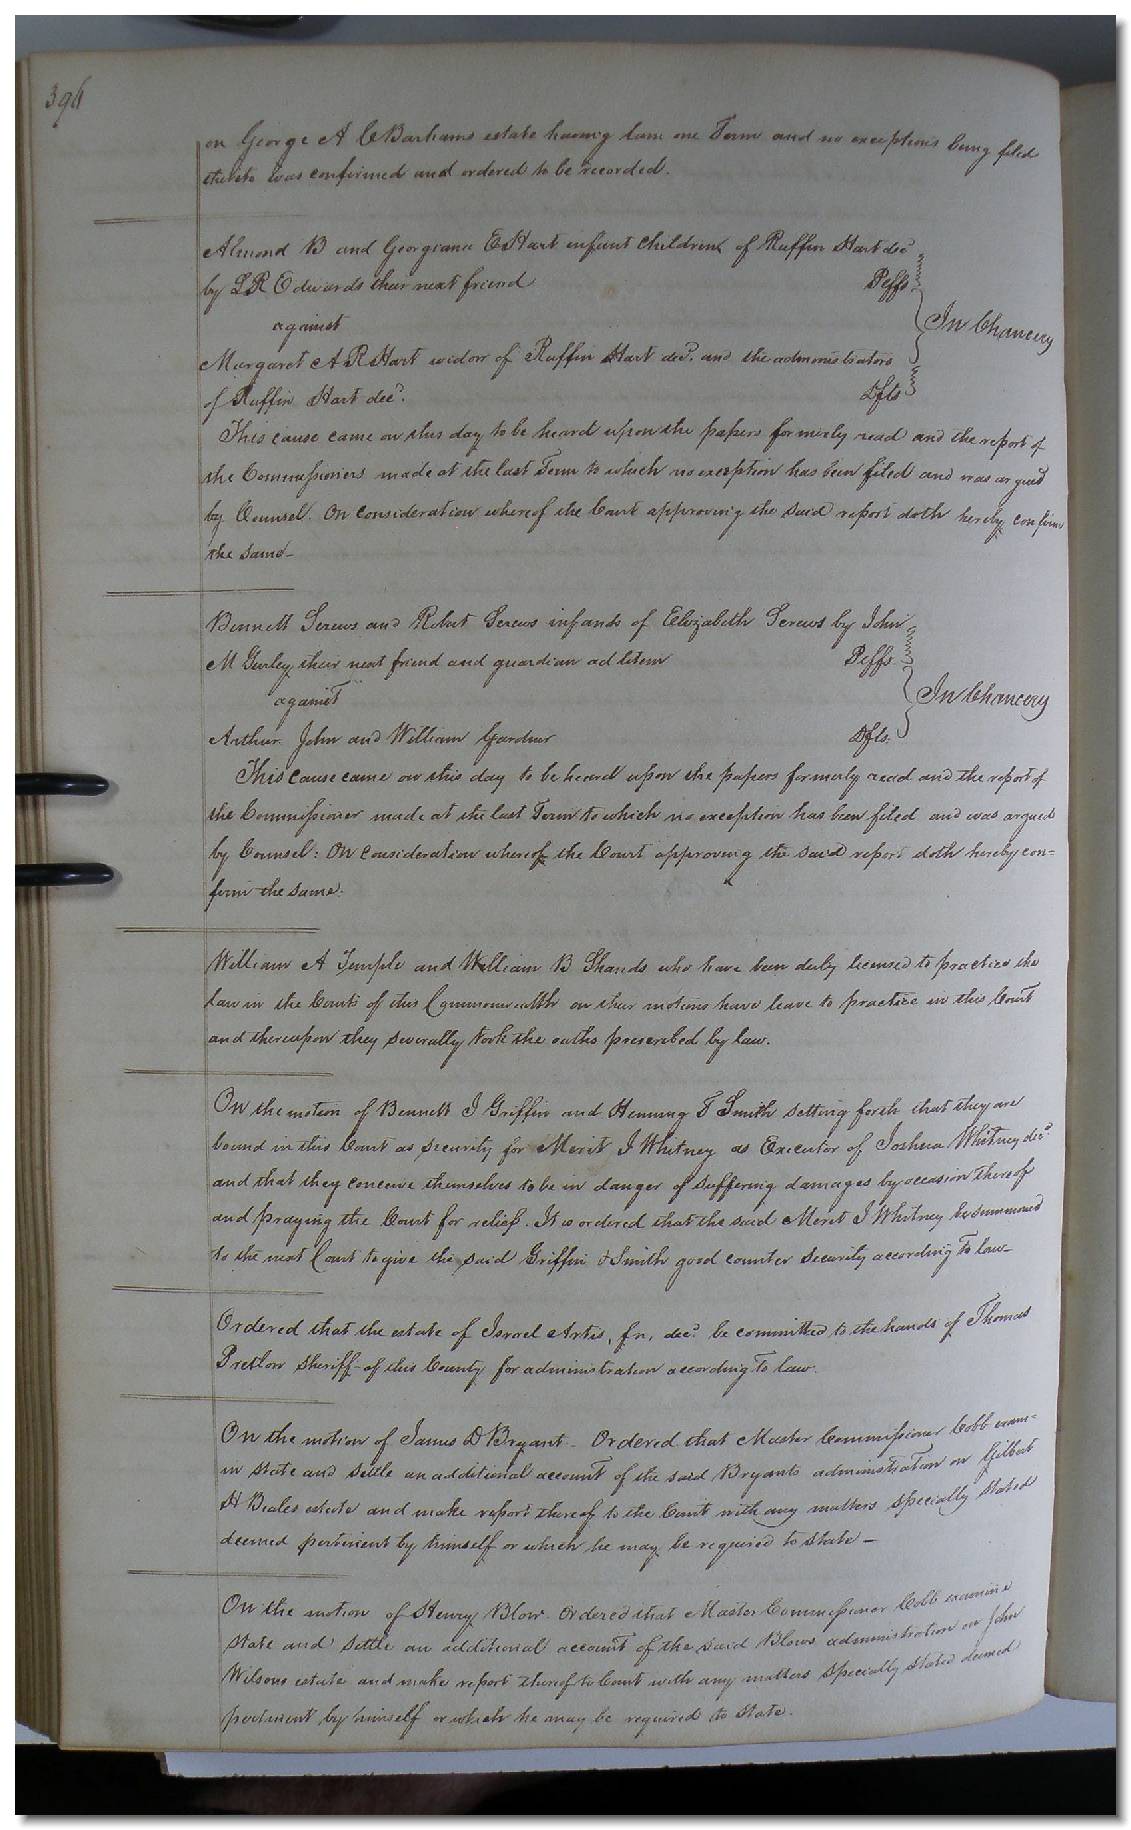 396
on George A C Barhams estate having lain one Term and no exceptions being filed
thereto was confirmed and ordered to be recorded.
Almond B and Georgiana E Hart infant children of Ruffin Hart decd
by L R Edwards their next friend Peffs
against
In Chancery
Margaret A R Hart widow of Ruffin Hart decd. and the administrators
of Ruffin Hart decd. Dfts
This cause came on this day to be heard upon the papers formerly read and the report of
the Commissioners made at the last Term to which no exception has been filed and was argued
by Counsel. On consideration whereof the Court approving the said report doth hereby confirm
the same—
Bennett Screws and Robert Screws infants of Elizabeth Screws by John
M Gurley their next friend and guardian ad litem Peffs
against
In Chancery
Arthur John and William Gardner Dfts.
This cause came on this day to be heard upon the papers formerly read and the report of
the Commissioner made at the last Term to which no exception has been filed and was argued
by Counsel: On consideration whereof the Court approving the said report doth hereby con=
firm the same.
William A Temple and William B Shands who have been duly licensed to practice the
law in the Courts of this Commonwealth on their motions have leave to practice in this Court
and thereupon they severally took the oaths prescribed by law.
On the motion of Bennett J Griffin and Henning T Smith setting forth that they are
bound in this Court as security for Merit J Whitney as Executor of Joshua Whitney decd
and that they conceive themselves to be in danger of suffering damages by occasion thereof
and praying the Court for relief. It is ordered that the said Merit J Whitney be summoned
to the next Court to give the said Griffin & Smith good counter security according to law—
Ordered that the estate of Israel Artis, fn, decd. be committed to the hands of Thomas
Pretlow Sheriff of this County for administration according to law.
On the motion of James D Bryant. Ordered that Master Commissioner Cobb exam=
in state and settle an additional account of the said Bryants administration on Gilbert
H Beales estate and make report thereof to the Court with any matters specially stated
deemed pertinent by himself or which he may be required to state—
On the motion of Henry Blow. Ordered that Master Commissioner Cobb examine
state and settle an additional account of the said Blows administration on John
Wilsons estate and make report thereof to Court with any matters specially stated deemed
pertinent by himself or which he may be required to state.